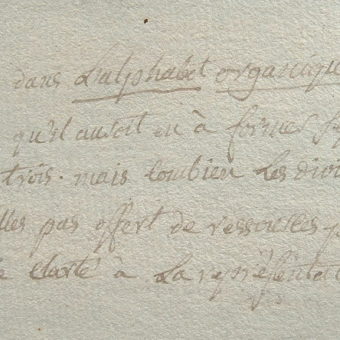 dans L'alphabet organique
qu'il auroit eu à former
trois. mais combien Les
pas offert de ressources
à La représentat